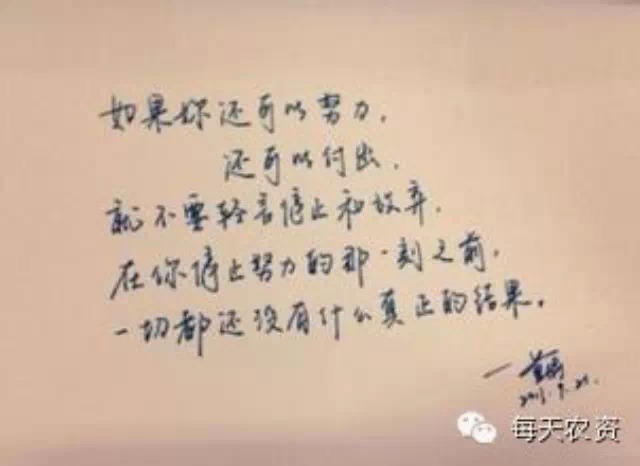 如果你还可以努力，
还可以付出，
就不要轻言停止和放弃。
在你停止努力的那一刻之前，
一切都还没有什么真正的结果。
每天农资